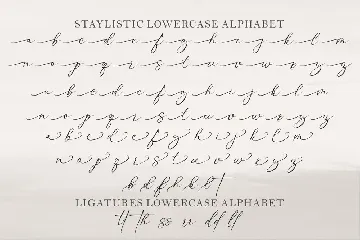 STAYLISTIC LOWERCASE ALPHABET
a b c d e f g h i j k l m
n o p q r s t u v w x y z
a b c d e f g h i j k l m
n o p q r s t u v w x y z
a b c d e f g h i j k l m
n o p q r s t u v w x y z
b d f h k l t
LIGATURES LOWERCASE ALPHABET
tt th ss rr dd ll